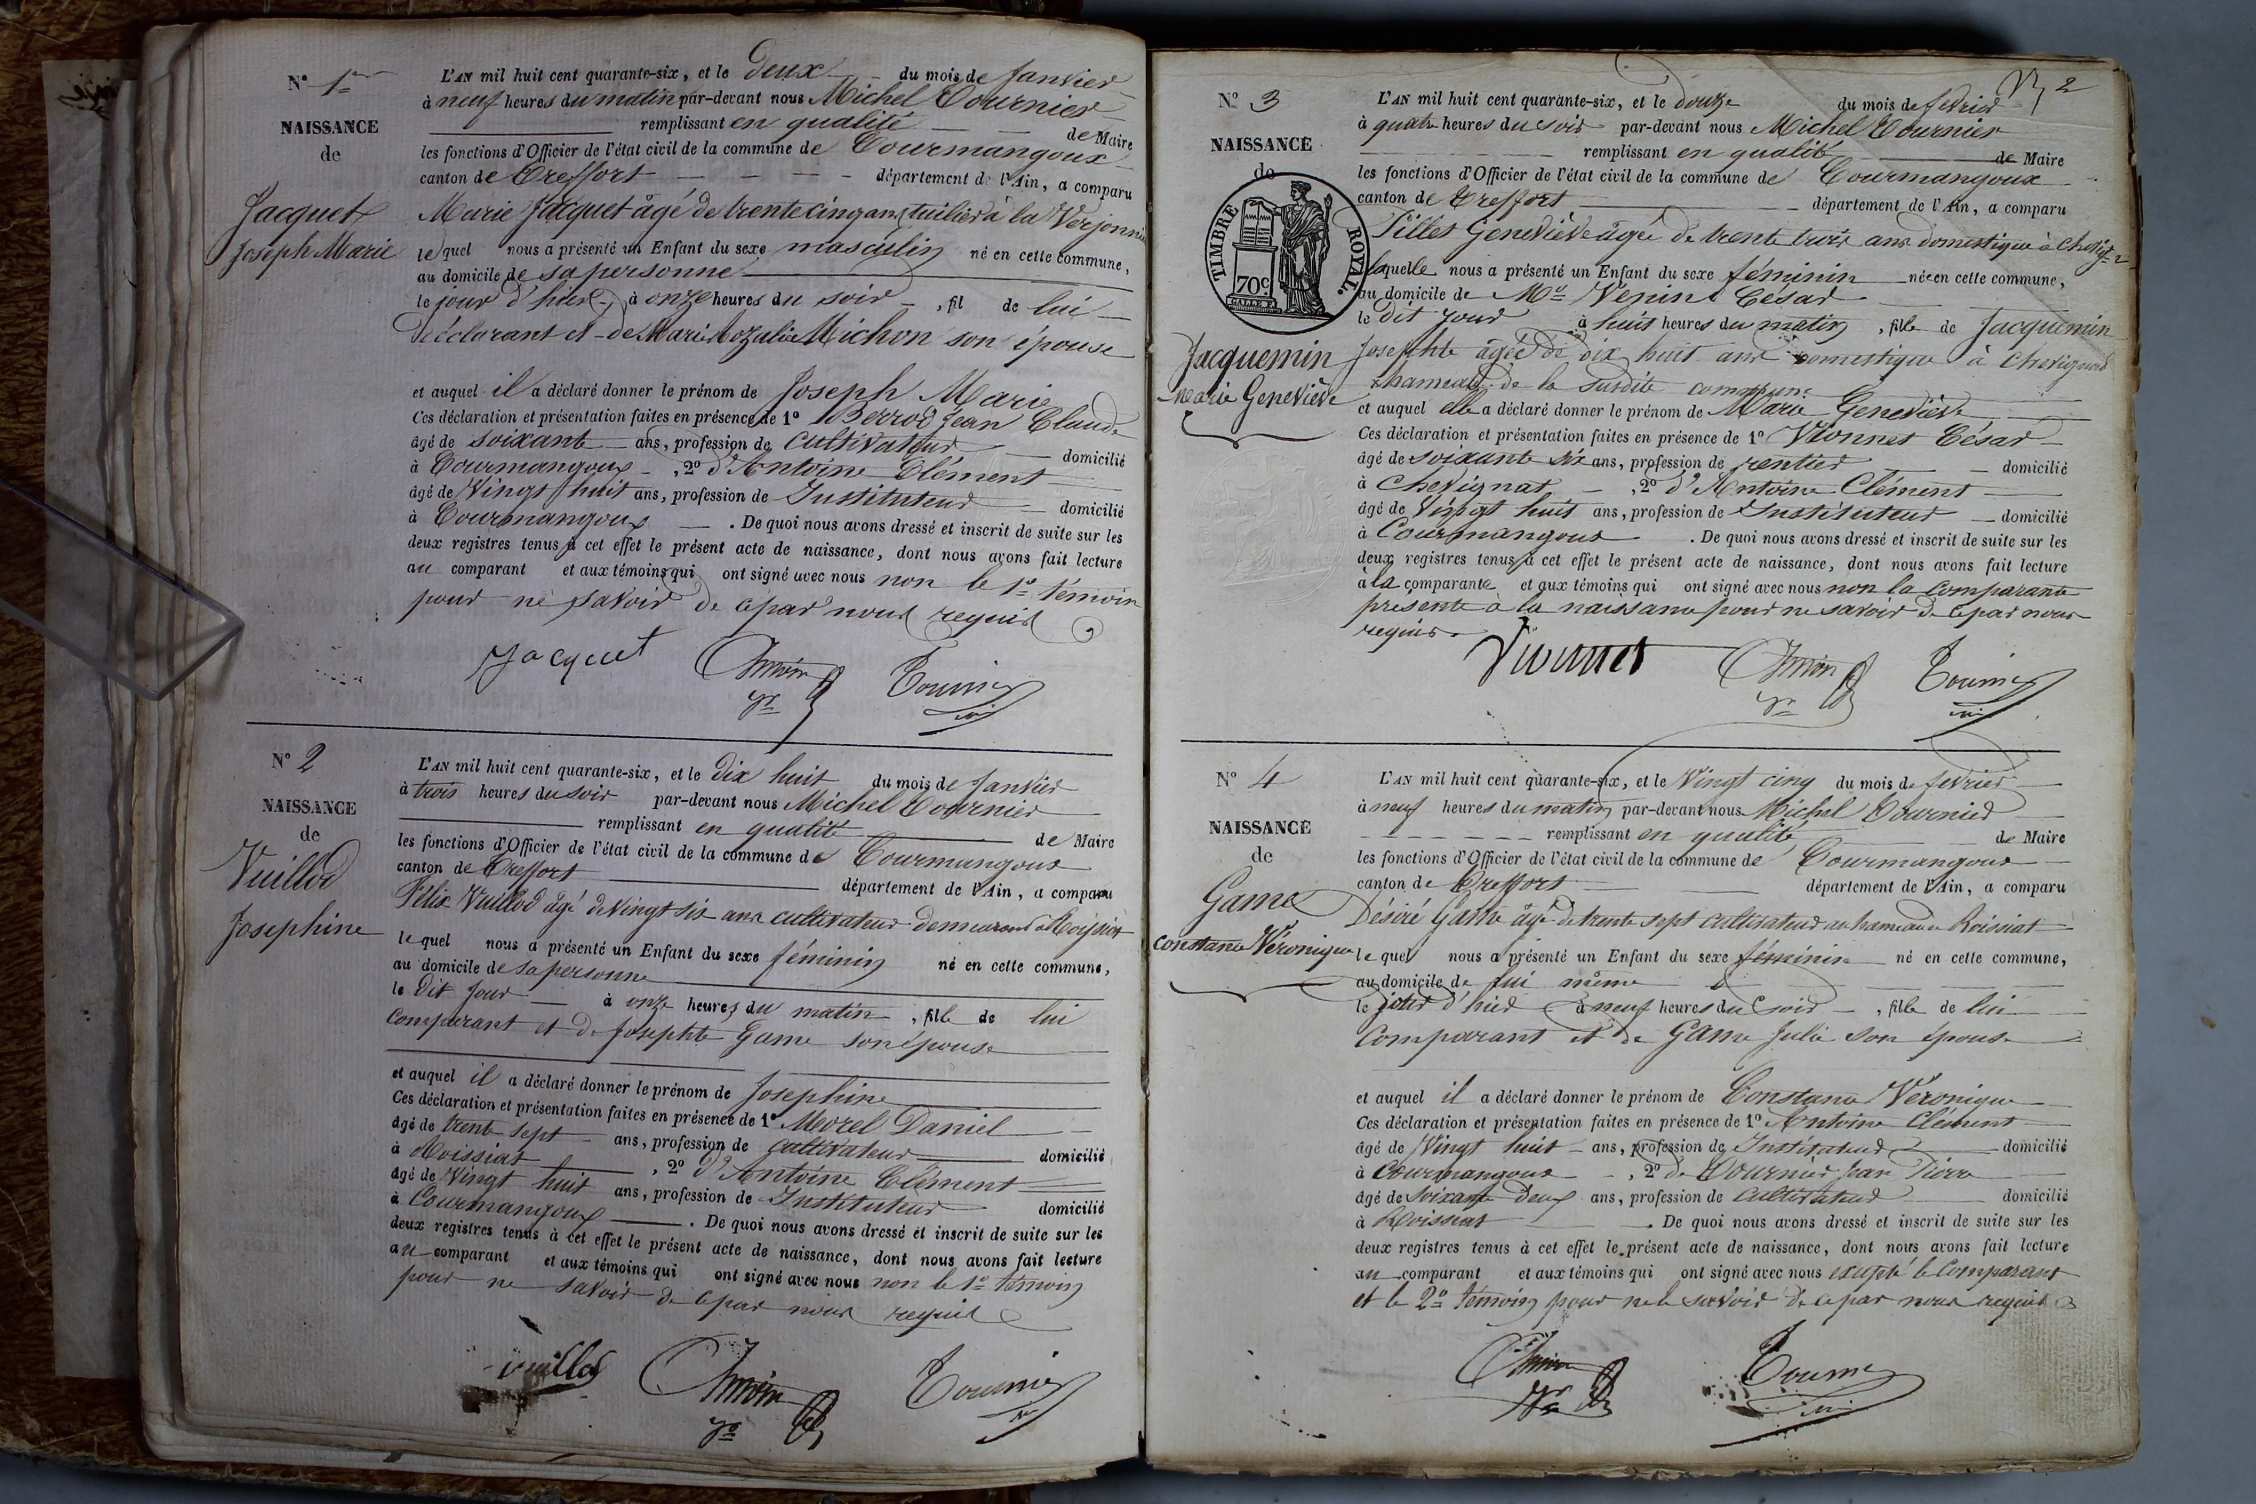 N° 1er
NAISSANCE
de
Jacquet
Joseph Marie
L'AN mil huit cent quarante-six, et le deux du mois de Janvier
à neuf heures du matin par-devant nous Michel Tournier
remplissant en qualité de Maire
les fonctions d'Officier de l'état civil de la commune de Courmangoux
canton de Treffort département de l'Ain, a comparu
Marie Jacquet âgé de trente cinq ans, tuilier à la Verjonnière
lequel nous a présenté un Enfant du sexe masculin né en cette commune,
au domicile de sa personne
le jour d'hier, à onze heures du soir, fil de lui
déclarant et de Marie Rozalie Michon son épouse
et auquel il a déclaré donner le prénom de Joseph Marie
Ces déclaration et présentation faites en présence de 1° Berrod Jean Claude
âgé de soixante ans, profession de cultivateur domicilié
à Courmangoux, 2° d'Antoine Clément
âgé de Vingt huit ans, profession de Instituteur domicilié
à Courmangoux. De quoi nous avons dressé et inscrit de suite sur les
deux registres tenus à cet effet le présent acte de naissance, dont nous avons fait lecture
au comparant et aux témoins qui ont signé avec nous non le 1er témoin
pour ne savoir de ce par nous requis
Jacquet Tournier
N° 2
NAISSANCE
de
Vuillod
Josephine
L'AN mil huit cent quarante-six, et le dix huit du mois de Janvier
à trois heures du soir par-devant nous Michel Tournier
remplissant en qualité de Maire
les fonctions d'Officier de l'état civil de la commune de Courmangoux
canton de Treffort département de l'Ain, a comparu
Félix Vuillod âgé de Vingt six ans cultivateur demeurant à Roissiat
lequel nous a présenté un Enfant du sexe féminin né en cette commune,
au domicile de sa personne
le dit jour à onze heures du matin, fille de lui
comparant et de Josephte Game son épouse
et auquel il a déclaré donner le prénom de Josephine
Ces déclaration et présentation faites en présence de 1° Morel Daniel
âgé de trente sept ans, profession de cultivateur domicilié
à Roissiat, 2° d'Antoine Clément
âgé de Vingt huit ans, profession de Instituteur domicilié
à Courmangoux. De quoi nous avons dressé et inscrit de suite sur les
deux registres tenus à cet effet le présent acte de naissance, dont nous avons fait lecture
au comparant et aux témoins qui ont signé avec nous non le 1er témoin
pour ne savoir de ce par nous requis
Vuillod Tournier
2
N° 3
NAISSANCE
de
TIMBRE ROYAL.
70c
Jacquemin
Marie Geneviève
L'AN mil huit cent quarante-six, et le douze du mois de fevrier
à quatre heures du soir par-devant nous Michel Tournier
remplissant en qualité de Maire
les fonctions d'Officier de l'état civil de la commune de Courmangoux
canton de Treffort département de l'Ain, a comparu
Geneviève âgée de trente trois ans domestique à
laquelle nous a présenté un Enfant du sexe féminin née en cette commune,
au domicile de Mr César
le dit jour à huit heures du matin, fille de Jacquemin
Josephte âgée de dix huit ans domestique à chevignat
hameau de la susdite commune
et auquel elle a déclaré donner le prénom de Marie Geneviève
Ces déclaration et présentation faites en présence de 1° Vionnet César
âgé de soixante six ans, profession de rentier domicilié
à Chevignat, 2° d'Antoine Clément
âgé de Vingt huit ans, profession de Instituteur domicilié
à Courmangoux. De quoi nous avons dressé et inscrit de suite sur les
deux registres tenus à cet effet le présent acte de naissance, dont nous avons fait lecture
à la comparante et aux témoins qui ont signé avec nous non la comparante
présente à la naissance pour ne savoir de ce par nous
requis.
Vionnet Tournier
N° 4
NAISSANCE
de
Game
Constance Véronique
L'AN mil huit cent quarante-six, et le Vingt cinq du mois de fevrier
à neuf heures du matin par-devant nous Michel Tournier
remplissant en qualité de Maire
les fonctions d'Officier de l'état civil de la commune de Courmangoux
canton de Treffort département de l'Ain, a comparu
Désiré Game âgé de trente sept cultivateur au hameau de Roissiat
lequel nous a présenté un Enfant du sexe féminin né en cette commune,
au domicile de lui même
le jour d'hier à neuf heures du soir, fille de lui
comparant et de Game Julie son épouse
et auquel il a déclaré donner le prénom de Constance Véronique
Ces déclaration et présentation faites en présence de 1° Antoine Clément
âgé de Vingt huit ans, profession de Instituteur domicilié
à Courmangoux, 2° de Tournier Jean Pierre
âgé de soixante deux ans, profession de cultivateur domicilié
à Roissiat. De quoi nous avons dressé et inscrit de suite sur les
deux registres tenus à cet effet le présent acte de naissance, dont nous avons fait lecture
au comparant et aux témoins qui ont signé avec nous excepté le comparant
et le 2° témoin pour ne le savoir de ce par nous requis
Tournier